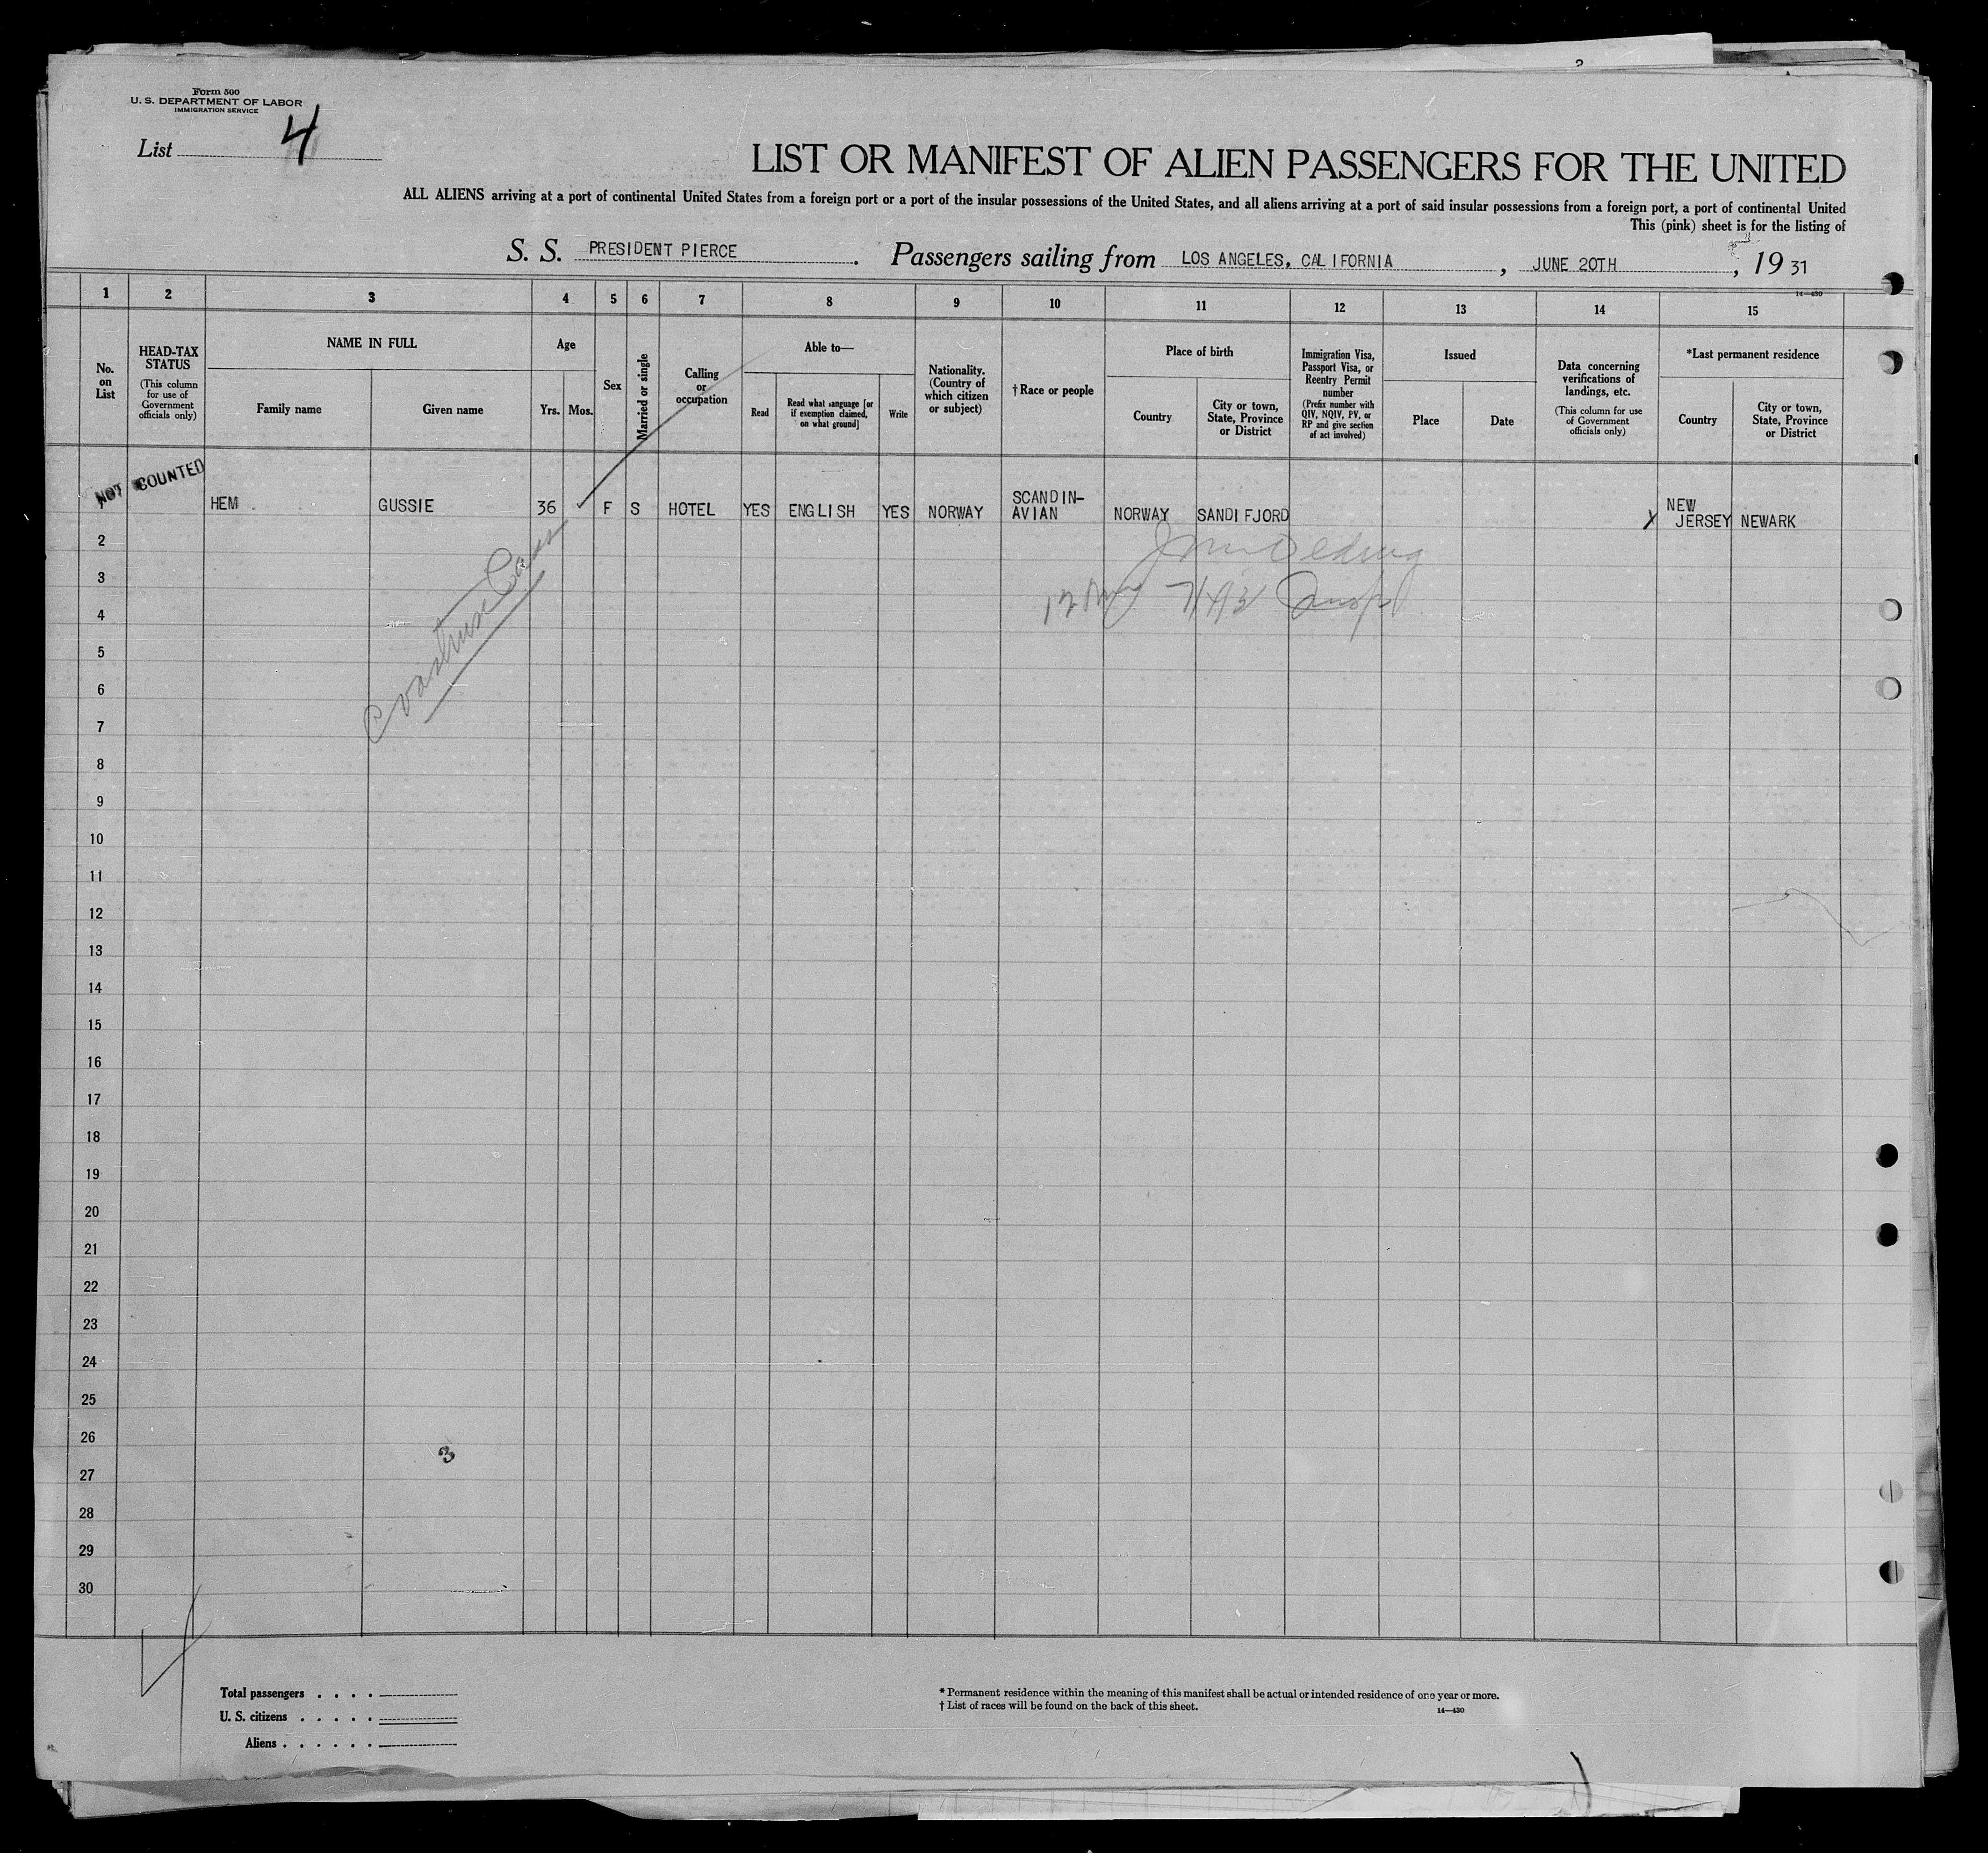 Form 500
U. S. DEPARTMENT OF LABOR
IMMIGRATION SERVICE
List 4
LIST OR MANIFEST OF ALIEN PASSENGERS FOR THE UNITED
ALL ALIENS arriving at a port of continental United States from a foreign port or a port of the insular possessions of the United States, and all aliens arriving at a port of said insular possessions from a foreign port, a port of continental United
This (pink) sheet is for the listing of
S. S. PRESIDENT PIERCE. Passengers sailing from LOS ANGELES, CALIFORNIA, JUNE 20TH, 1931
14—430
1 2 3 4 5 6 7 8 9 10 11 12 13 14 15
No. on List
HEAD-TAX STATUS
(This column for use of Government officials only)
NAME IN FULL
Family name
Given name
Age
Yrs. Mos.
Sex
Married or single
Calling or occupation
Able to—
Read
Read what language [or if exemption claimed, on what ground]
Write
Nationality. (Country of which citizen or subject)
† Race or people
Place of birth
Country
City or town, State, Province or District
Immigration Visa, Passport Visa, or Reentry Permit number
(Prefix number with QIV, NQIV, PV, or RP and give section of act involved)
Issued
Place
Date
Data concerning verifications of landings, etc.
(This column for use of Government officials only)
*Last permanent residence
Country
City or town, State, Province or District
NOT COUNTED
HEM GUSSIE 36 F S HOTEL YES ENGLISH YES NORWAY SCANDIN-AVIAN NORWAY SANDIFJORD X NEW JERSEY NEWARK
2
3
4
5
6
7
8
9
10
11
12
13
14
15
16
17
18
19
20
21
22
23
24
25
26
3
27
28
29
30
Total passengers . . . .
U. S. citizens . . . . .
Aliens . . . . . .
* Permanent residence within the meaning of this manifest shall be actual or intended residence of one year or more.
† List of races will be found on the back of this sheet.
14—430